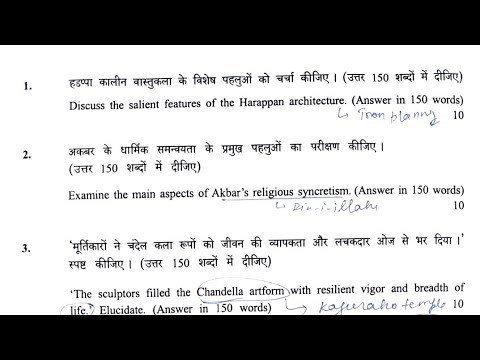 1. हडप्पा कालीन वास्तुकला के विशेष पहलुओं को चर्चा कीजिए। (उत्तर 150 शब्दों में दीजिए)
Discuss the salient features of the Harappan architecture. (Answer in 150 words)
↳ Town planny 10
2. अकबर के धार्मिक समन्वयता के प्रमुख पहलुओं का परीक्षण कीजिए।
(उत्तर 150 शब्दों में दीजिए)
Examine the main aspects of Akbar's religious syncretism. (Answer in 150 words)
↳ Din-i-illahi 10
3. 'मूर्तिकारों ने चंदेल कला रूपों को जीवन की व्यापकता और लचकदार ओज से भर दिया।'
स्पष्ट कीजिए। (उत्तर 150 शब्दों में दीजिए)
'The sculptors filled the Chandella artform with resilient vigor and breadth of
life.' Elucidate. (Answer in 150 words) ↳ Kajuraho temple 10